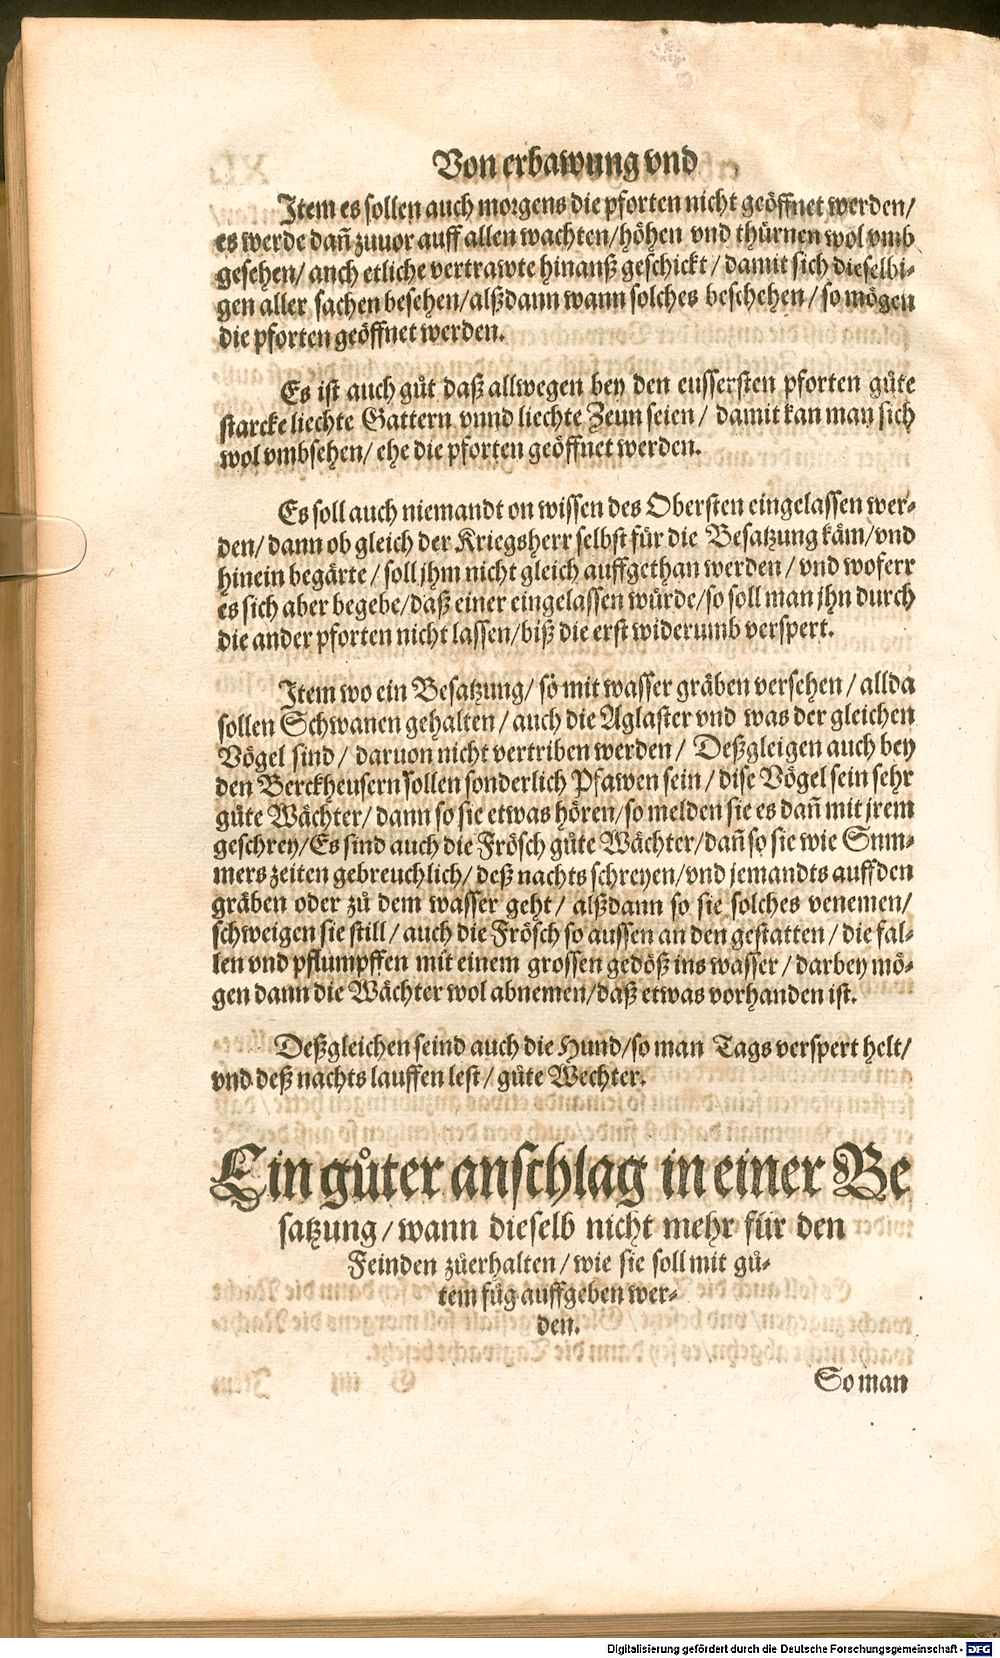 Von erbawung vnd
Item es sollen auch morgens die pforten nicht geöffnet werden/
es werde dañ zuuor auff allen wachten/höhen vnd thürnen wol vmb
gesehen/ anch etliche vertrawte hinanß geschickt/ damit sich dieselbi-
gen aller sachen besehen/alßdann wann solches beschehen/so mögen
die pforten geöffnet werden.
Es ist auch gůt daß allwegen bey den eussersten pforten gůte
starcke liechte Gattern vnnd liechte Zeun seien/ damit kan man sich
wol vmbsehen/ ehe die pforten geöffnet werden.
Es soll auch niemandt on wissen des Obersten eingelassen wer-
den/ dann ob gleich der Kriegsherr selbst für die Besatzung käm/vnd
hinein begärte/ soll jhm nicht gleich auffgethan werden/ vnd woferr
es sich aber begebe/daß einer eingelassen würde/so soll man jhn durch
die ander pforten nicht lassen/biß die erst widerumb verspert.
Item wo ein Besatzung/ so mit wasser gräben versehen/ allda
sollen Schwanen gehalten/ auch die Aglaster vnd was der gleichen
Vögel sind/ daruon nicht vertriben werden/ Deßgleigen auch bey
den Berckheusern sollen sonderlich Pfawen sein/ dise Vögel sein sehr
gůte Wächter/ dann so sie etwas hören/so melden sie es dañ mit jrem
geschrey/Es sind auch die Frösch gůte Wächter/dañ so sie wie Snm-
mers zeiten gebreuchlich/ deß nachts schreyen/vnd jemandts auff den
gräben oder zů dem wasser geht/ alßdann so sie solches venemen/
schweigen sie still/ auch die Frösch so aussen an den gestatten/ die fal-
len vnd pflumpffen mit einem grossen gedöß ins wasser/ darbey mö-
gen dann die Wächter wol abnemen/daß etwas vorhanden ist.
Deßgleichen seind auch die Hund/so man Tags verspert helt/
vnd deß nachts lauffen lest/ gůte Wechter.
Ein gůter anschlag in einer Be
satzung/wann dieselb nicht mehr für den
Feinden zůerhalten/wie sie soll mit gů-
tem fůg auffgeben wer-
den.
So man
Digitalisierung gefördert durch die Deutsche Forschungsgemeinschaft - DFG